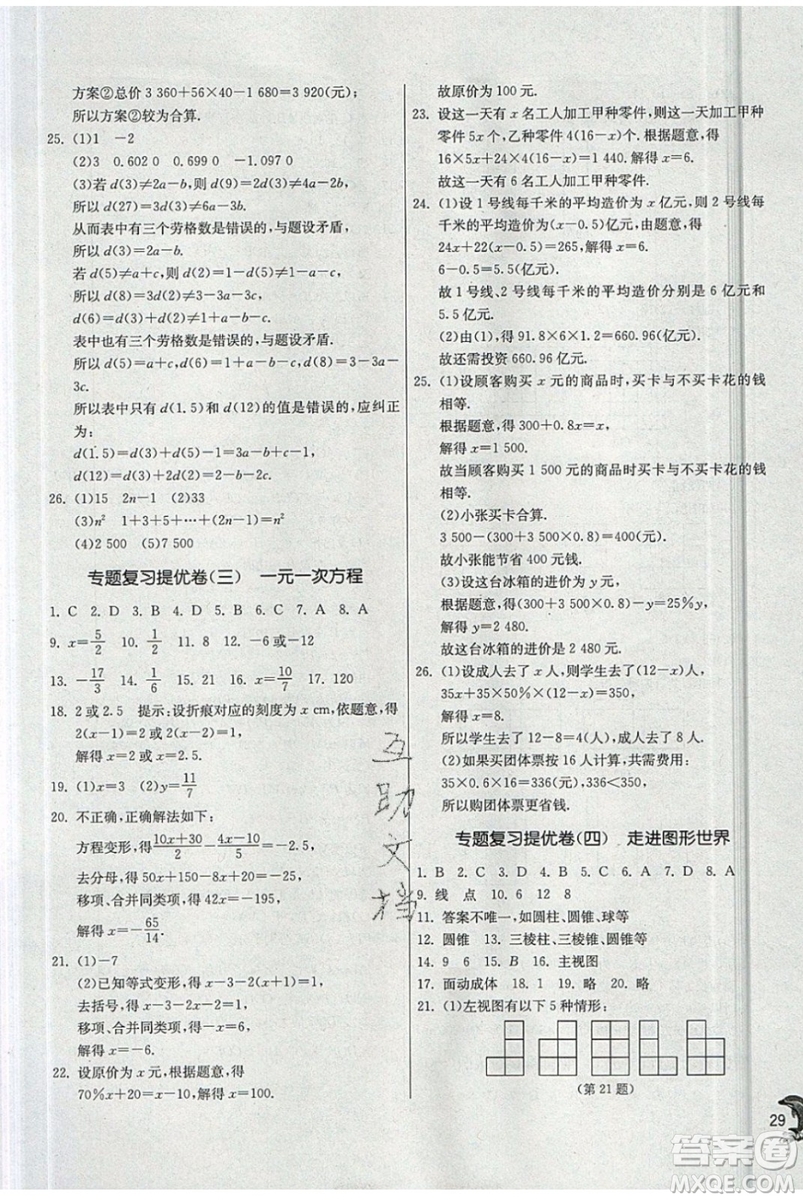 方案②总价 3 360+56×40-1 680=3 920(元);
所以方案②较为合算.
25. (1)1 -2
(2)3 0.602 0 0.699 0 -1.097 0
(3)若 d(3)≠2a-b,则 d(9)=2d(3)≠4a-2b,
所以 d(27)=3d(3)≠6a-3b.
从而表中有三个劳格数是错误的,与题设矛盾,
所以 d(3)=2a-b.
若 d(5)≠a+c,则 d(2)=1-d(5)≠1-a-c,
所以 d(8)=3d(2)≠3-3a-3c,
d(6)=d(3)+d(2)≠1+a-b-c,
表中也有三个劳格数是错误的,与题设矛盾.
所以 d(5)=a+c,d(6)=1+a-b-c,d(8)=3-3a-
3c.
所以表中只有 d(1.5)和 d(12)的值是错误的,应纠正
为:
d(1.5)=d(3)+d(5)-1=3a-b+c-1,
d(12)=d(3)+2d(2)=2-b-2c.
26. (1)15 2n-1 (2)33
(3)n² 1+3+5+…+(2n-1)=n²
(4)2 500 (5)7 500
专题复习提优卷(三) 一元一次方程
1. C 2. D 3. B 4. D 5. B 6. C 7. A 8. A
9. x=5/2 10. 1/2 11. 8 12. -6或-12
13. -17/3 14. 1/6 15. 21 16. x=10/7 17. 120
18. 2或2.5 提示:设折痕对应的刻度为 x cm,依题意,得
2(x-1)=2 或 2(x-2)=1,
解得 x=2 或 x=2.5.
19. (1)x=3 (2)y=11/7
20. 不正确,正确解法如下:
方程变形,得 (10x+30)/2-(4x-10)/5=-2.5,
去分母,得 50x+150-8x+20=-25,
移项、合并同类项,得 42x=-195,
解得 x=-65/14.
21. (1)-7
(2)已知等式变形,得 x-2-3x-3=x-2+x+21,
去括号,得 x-2-3x-3=x-2+x+21,
移项、合并同类项,得-4x=24,
解得 x=-6.
22. 设原价为 x 元,根据题意,得
70%x+20=x-10. 解得 x=100.
故原价为 100 元.
23. 设这一天有 x 名工人加工甲种零件,则这一天加工甲种
零件 5x 个,乙种零件 4(16-x)个. 根据题意,得
16×5x+24×4(16-x)=1 440. 解得 x=6.
故这一天有 6 名工人加工甲种零件.
24. (1)设 1 号线每千米的平均造价为 x 亿元,则 2 号线每
千米的平均造价为(x-0.5)亿元,由题意,得
24x+22(x-0.5)=265,解得 x=6.
6-0.5=5.5.
故 1 号线、2 号线每千米的平均造价分别是 6 亿元和
5.5 亿元.
(2)由(1)得出:91.8×6×1.2=660.96(亿元).
故还需投资 660.96 亿元.
25. (1)设顾客购买 x 元的商品时,买卡与不买卡花的钱
相等.
根据题意,得 300+0.8x=x,
解得 x=1 500.
故当顾客购买 1 500 元的商品时买卡与不买卡花的钱
相等.
(2)小张买卡合算.
3 500-(300+3 500×0.8)=400(元).
故小张能节省 400 元钱.
(3)设这台冰箱的进价为 y 元.
根据题意,得(300+3 500×0.8)-y=25%y,
解得 y=2 480.
故这台冰箱的进价是 2 480 元.
26. (1)设成人去了 x 人,则学生去了(12-x)人,
35x+35×50%×(12-x)=350,
解得 x=8.
所以学生去了 12-8=4(人),成人去了 8 人.
(2)如果买团体票按 16 人计算,共需费用:
35×0.6×16=336(元),336<350,
所以购团体票更省钱.
专题复习提优卷(四) 走进图形世界
1. B 2. C 3. C 4. D 5. A 6. B 7. D 8. A
9. 线 点 10. 6 12 8
11. 答案不唯一,如圆柱、圆锥、球等
12. 圆锥 13. 三棱柱、三棱锥、圆锥
14. 9 6 15. B 16. 主视图
17. 面动成体 18. 略 19. 略 20. 略
21. (1)左视图有以下 5 种情形:
(第 21 题)
29
互助文档
答案圈
MXQE.COM